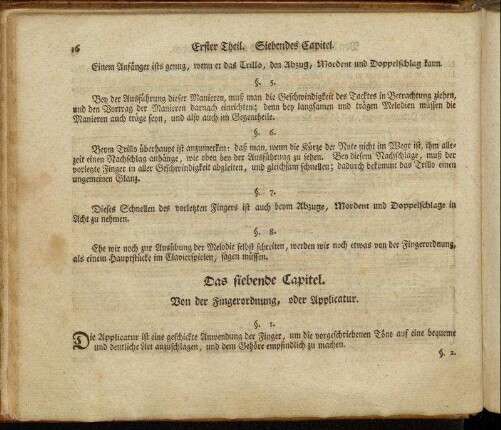 16 Erster Theil. Siebendes Capitel.
Einem Anfänger ists genug, wenn er das Trillo, den Abzug, Mordent und Doppelschlag kann.
§. 5.
Bey der Ausführung dieser Manieren, muß man die Geschwindigkeit des Tactes in Betrachtung ziehen,
und den Vortrag der Manieren darnach einrichten; denn bey langsamen und trägen Melodien müssen die
Manieren auch träge seyn, und also auch im Gegentheile.
§. 6.
Beym Trillo überhaupt ist anzumerken: daß man, wenn die Kürze der Note nicht im Wege ist, ihm alle-
zeit einen Nachschlag anhänge, wie oben bey der Ausführung zu sehen. Bey diesem Nachschlage, muß der
vorletzte Finger in aller Geschwindigkeit abgleiten, und gleichsam schnellen; dadurch bekommt das Trillo einen
ungemeinen Glanz.
§. 7.
Dieses Schnellen des vorletzten Fingers ist auch beym Abzuge, Mordent und Doppelschlage in
Acht zu nehmen.
§. 8.
Ehe wir noch zur Ausübung der Melodie selbst schreiten, werden wir noch etwas von der Fingerordnung,
als einem Hauptstücke im Clavierspielen, sagen müssen.
Das siebende Capitel.
Von der Fingerordnung, oder Applicatur.
§. 1.
Die Applicatur ist eine geschickte Anwendung der Finger, um die vorgeschriebenen Töne auf eine bequeme
und deutliche Art anzuschlagen, und dem Gehöre empfindlich zu machen.
§. 2.